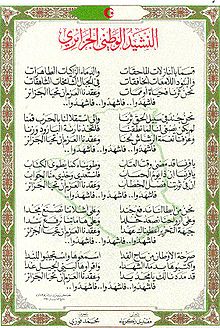 النشيد الوطني الجزائري
قسما بالنازلات الماحقات والدماء الزاكيات الطاهرات
والبنود اللامعات الخافقات في الجبال الشامخات الشاهقات
نحن ثرنا فحياة أو ممات وعقدنا العزم أن تحيا الجزائر
فاشهدوا... فاشهدوا... فاشهدوا...
نحن جند في سبيل الحق ثرنا وإلى استقلالنا بالحرب قمنا
وعقدنا العزم أن تحيا الجزائر
فاشهدوا... فاشهدوا... فاشهدوا...
يا فرنسا قد مضى وقت العتاب وطويناه كما يطوى الكتاب
يا فرنسا إن ذا يوم الحساب فاستعدي وخذي منا الجواب
إن في ثورتنا فصل الخطاب وعقدنا العزم أن تحيا الجزائر
فاشهدوا... فاشهدوا... فاشهدوا...
نحن من أبطالنا ندفع جندا وعلى أشلائنا نصنع مجدا
وعقدنا العزم أن تحيا الجزائر
فاشهدوا... فاشهدوا... فاشهدوا...
صرخة الأوطان من ساح الفدا اسمعوها واستجيبوا للندا
واكتبوها بدماء الشهدا واقرأوها لبني الجيل غدا
قد مددنا لك يا مجد يدا وعقدنا العزم أن تحيا الجزائر
فاشهدوا... فاشهدوا... فاشهدوا...